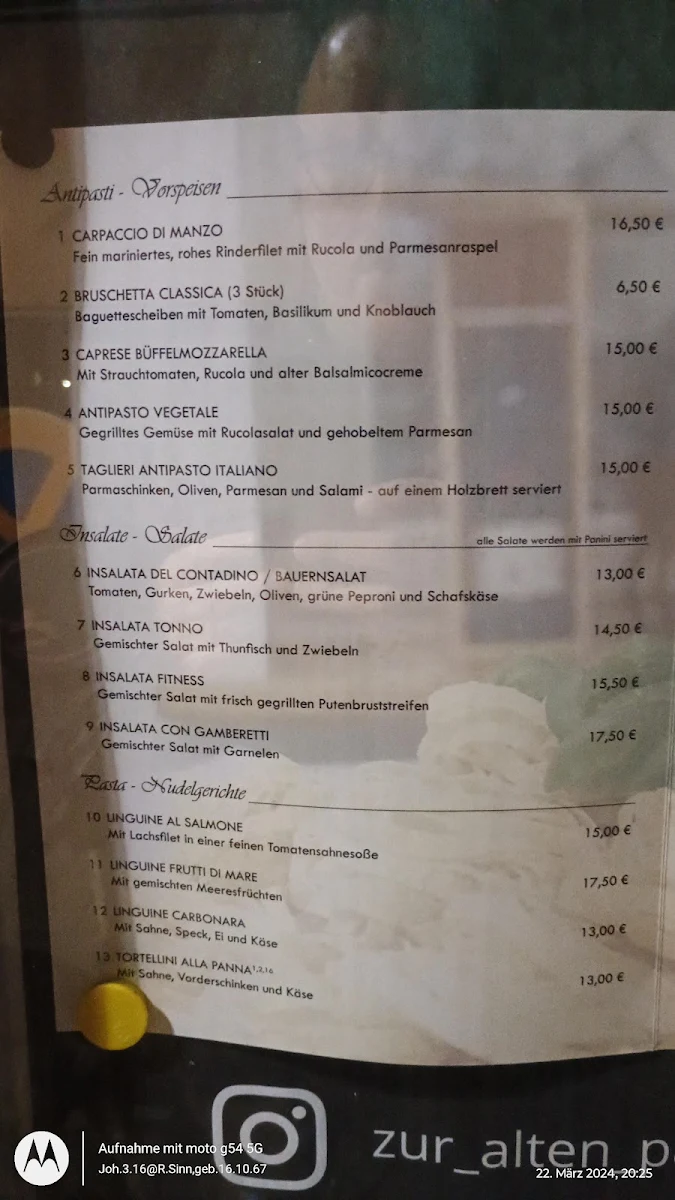 Antipasti - Vorspeisen
1 CARPACCIO DI MANZO 16,50 €
Fein mariniertes, rohes Rinderfilet mit Rucola und Parmesanraspel
2 BRUSCHETTA CLASSICA (3 Stück) 6,50 €
Baguettescheiben mit Tomaten, Basilikum und Knoblauch
3 CAPRESE BÜFFELMOZZARELLA 15,00 €
Mit Strauchtomaten, Rucola und alter Balsalmicocreme
4 ANTIPASTO VEGETALE 15,00 €
Gegrilltes Gemüse mit Rucolasalat und gehobeltem Parmesan
5 TAGLIERI ANTIPASTO ITALIANO 15,00 €
Parmaschinken, Oliven, Parmesan und Salami - auf einem Holzbrett serviert
Insalate - Salate alle Salate werden mit Panini serviert
6 INSALATA DEL CONTADINO / BAUERNSALAT 13,00 €
Tomaten, Gurken, Zwiebeln, Oliven, grüne Peproni und Schafskäse
7 INSALATA TONNO 14,50 €
Gemischter Salat mit Thunfisch und Zwiebeln
8 INSALATA FITNESS 15,50 €
Gemischter Salat mit frisch gegrillten Putenbruststreifen
9 INSALATA CON GAMBERETTI 17,50 €
Gemischter Salat mit Garnelen
Pasta - Nudelgerichte
10 LINGUINE AL SALMONE 15,00 €
Mit Lachsfilet in einer feinen Tomatensahnesoße
11 LINGUINE FRUTTI DI MARE 17,50 €
Mit gemischten Meeresfrüchten
12 LINGUINE CARBONARA 13,00 €
Mit Sahne, Speck, Ei und Käse
13 TORTELLINI ALLA PANNA 1,2,16 13,00 €
Mit Sahne, Vorderschinken und Käse
zur_alten_p
Aufnahme mit moto g54 5G
Joh.3.16@R.Sinn,geb.16.10.67
22. März 2024, 20:25